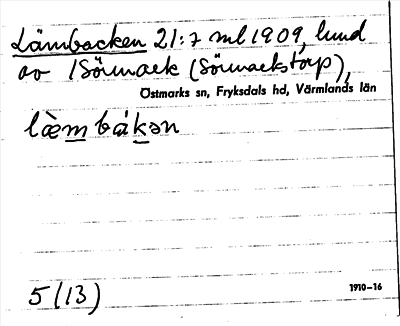 Lämbacken 21:7 ml 1909, lund
av 1 Sörmark (Sörmarkstorp),
Östmarks sn, Fryksdals hd, Värmlands län
lὲm båkən
5 (13)
1910–16